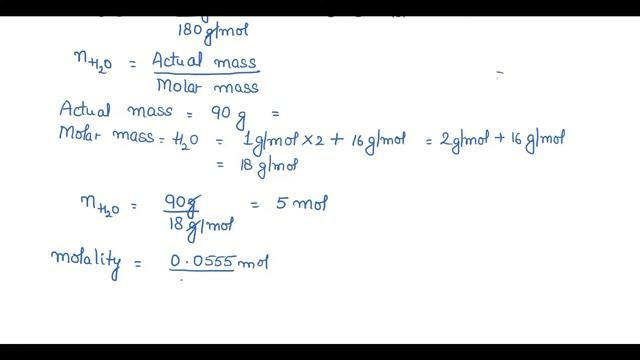 180 g/mol
nH₂O = Actual mass
Molar mass
Actual mass = 90 g =
Molar mass = H₂O = 1 g/mol × 2 + 16 g/mol = 2 g/mol + 16 g/mol
= 18 g/mol
nH₂O = 90g = 5 mol
18 g/mol
molality = 0.0555 mol